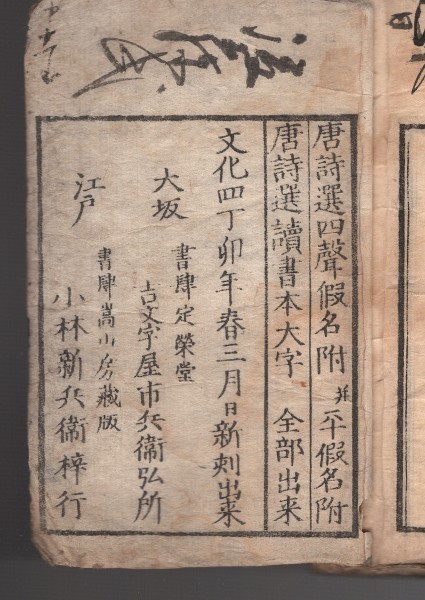 唐詩選四聲假名附 并 平假名附
唐詩選讀書本大字 全部出来
文化四丁卯年春三月日新刺出来
大坂
書肆定榮堂
吉文字屋市兵衞弘所
江戸
書肆嵩山房藏版
小林新兵衞梓行